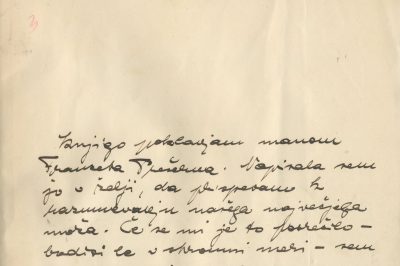 3
Knjigo poklanjam manom
Franceta Prešerna. Napisala sem
jo v želji, da prispevam k
razumevanju našega največjega
moža. Če se mi je to posrečilo –
bodisi le v skromni meri – sem